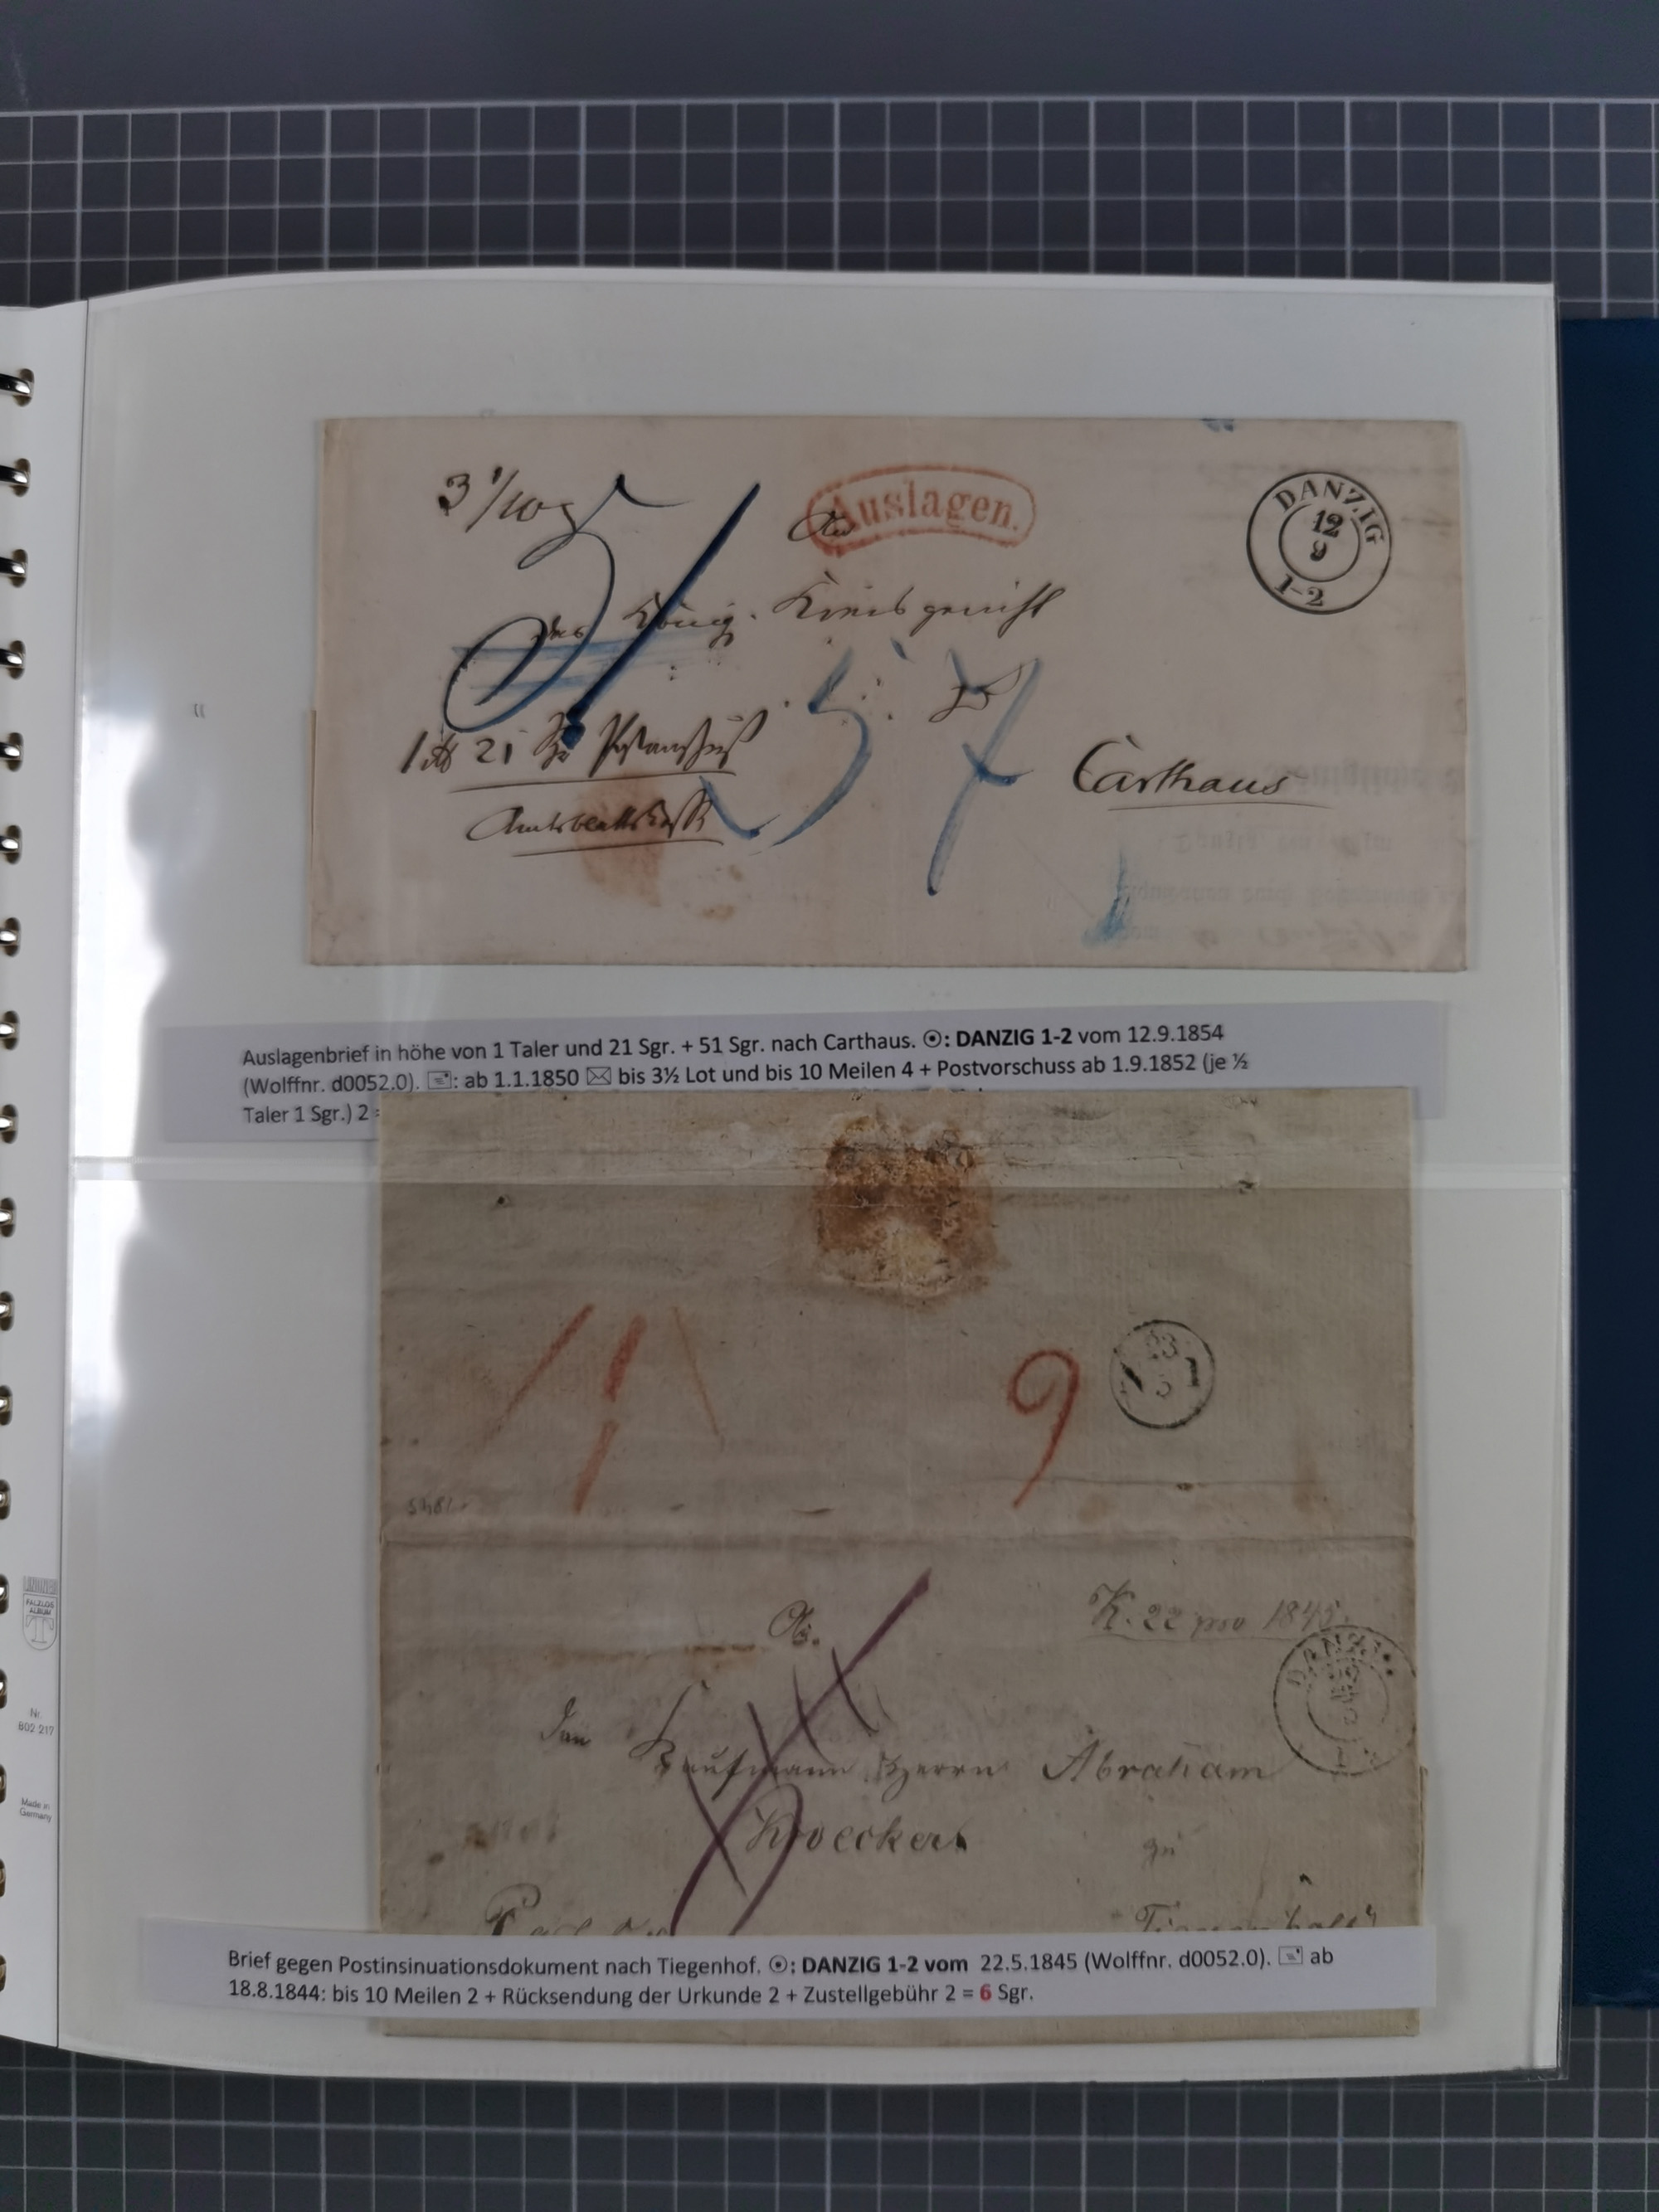 3 1/10
Auslagen.
An
DANZIG
12
9
1-2
das König. Kreisgericht
zu
1 21 Postvorschuß
57
Carthaus
Auslagenbrief in höhe von 1 Taler und 21 Sgr. + 51 Sgr. nach Carthaus. ☉: DANZIG 1-2 vom 12.9.1854
(Wolffnr. d0052.0). : ab 1.1.1850 ✉ bis 3½ Lot und bis 10 Meilen 4 + Postvorschuss ab 1.9.1852 (je ½
Taler 1 Sgr.) 2 =
9
23
5
1845
K. 22 pro 1845.
DANZIG
1-2
An
den Kaufmann Herrn Abraham
Kroecker
zu
Tiegenhoff
Brief gegen Postinsinuationsdokument nach Tiegenhof. ☉: DANZIG 1-2 vom 22.5.1845 (Wolffnr. d0052.0). ab
18.8.1844: bis 10 Meilen 2 + Rücksendung der Urkunde 2 + Zustellgebühr 2 = 6 Sgr.
LINDNER
FALZLOS
ALBUM
T
Nr.
802 217
Made in
Germany